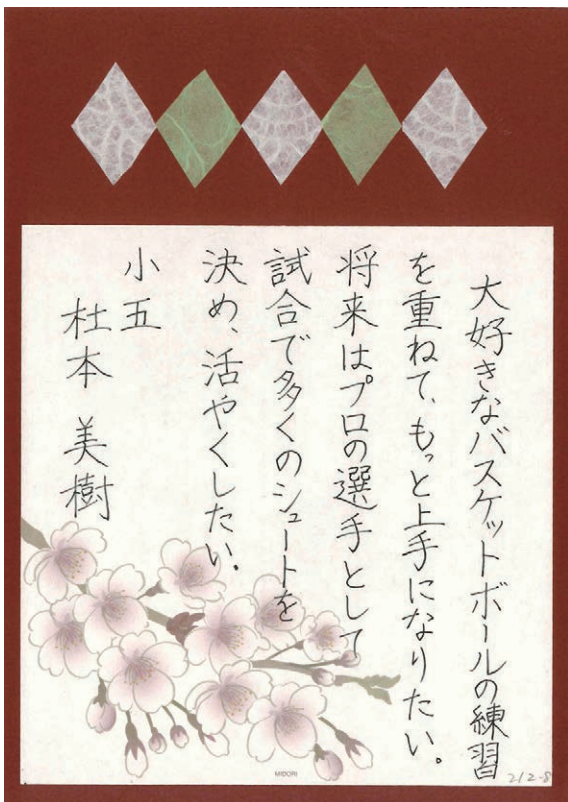 大好きなバスケットボールの練習
を重ねて、もっと上手になりたい。
将来はプロの選手として
試合で多くのシュートを
決め、活やくしたい。
小五
杜本 美樹
MIDORI
212-8